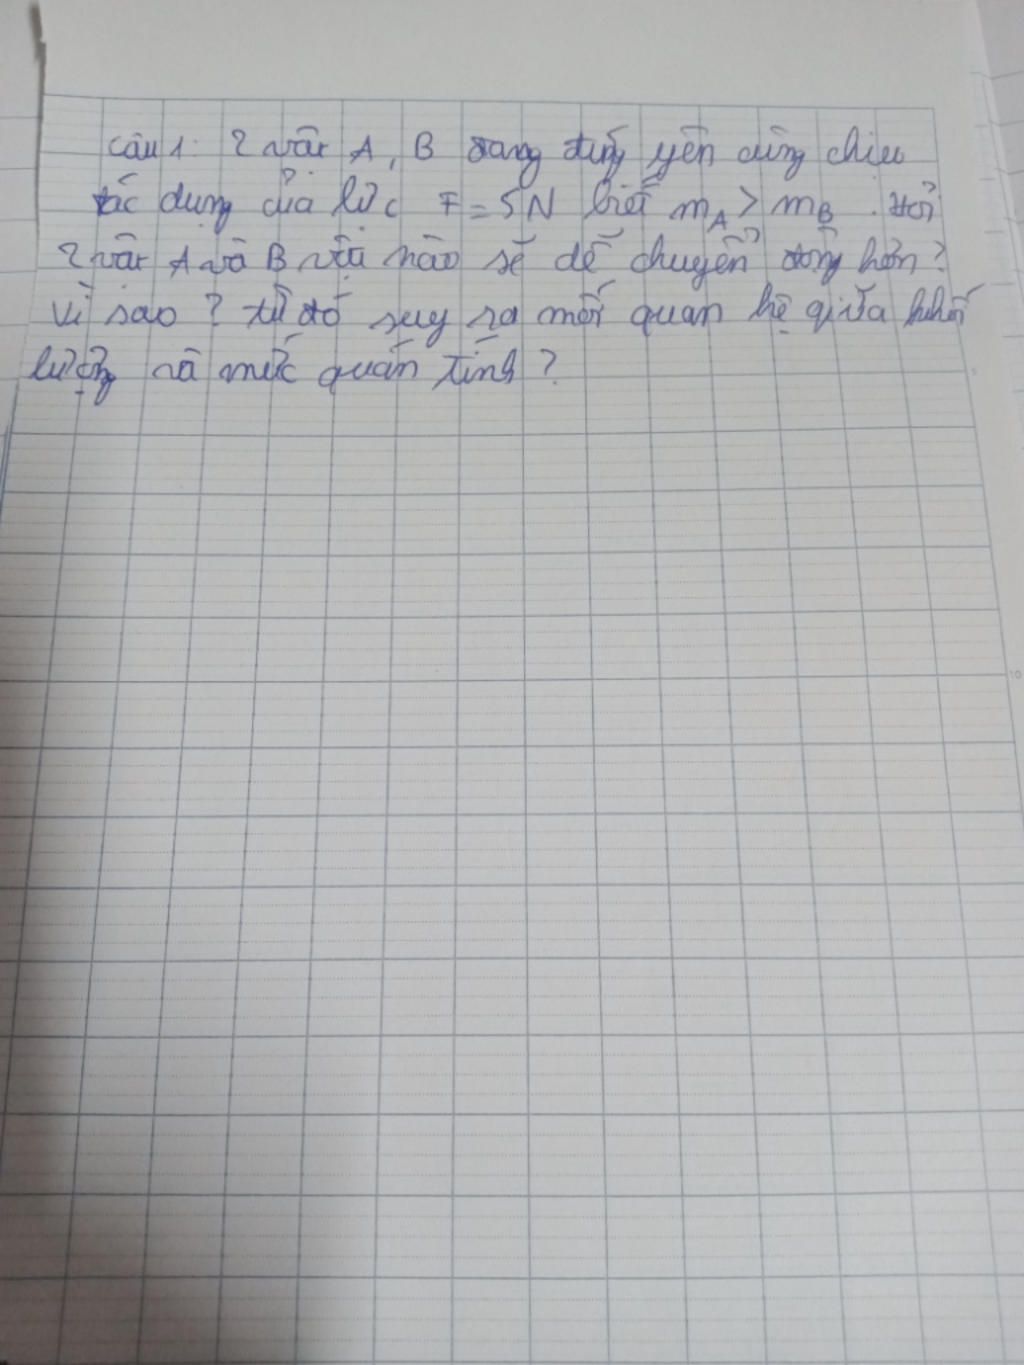 Câu 1: 2 vật A, B đang đứng yên cùng chịu
tác dụng của lực F = 5N biết mA > mB. Hỏi
2 vật A và B vật nào sẽ dễ chuyển động hơn?
Vì sao? từ đó suy ra mối quan hệ giữa khối
lượng và mức quán tính?
5
10